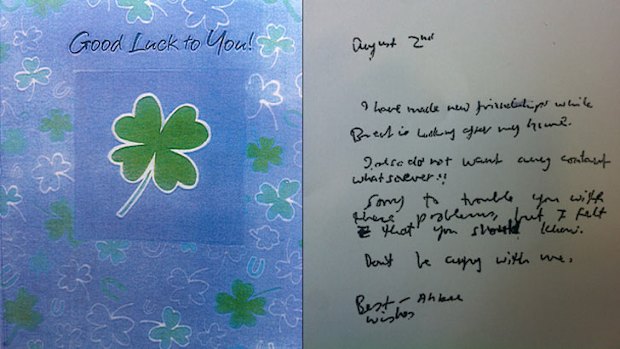 Good Luck to You!
August 2nd
I have made new friendships while
is looking after my home.
I also do not want any contact
whatsoever!!
Sorry to trouble you with
these problems, but I felt
that you should know.
Don't be angry with me.
Best
wishes